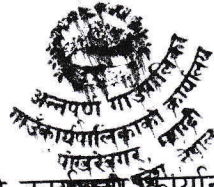 अन्नपूर्ण गाउँपालिका
गाउँकार्यपालिकाको कार्यालय
पोखरेबगर, म्याग्दी
नेपाल